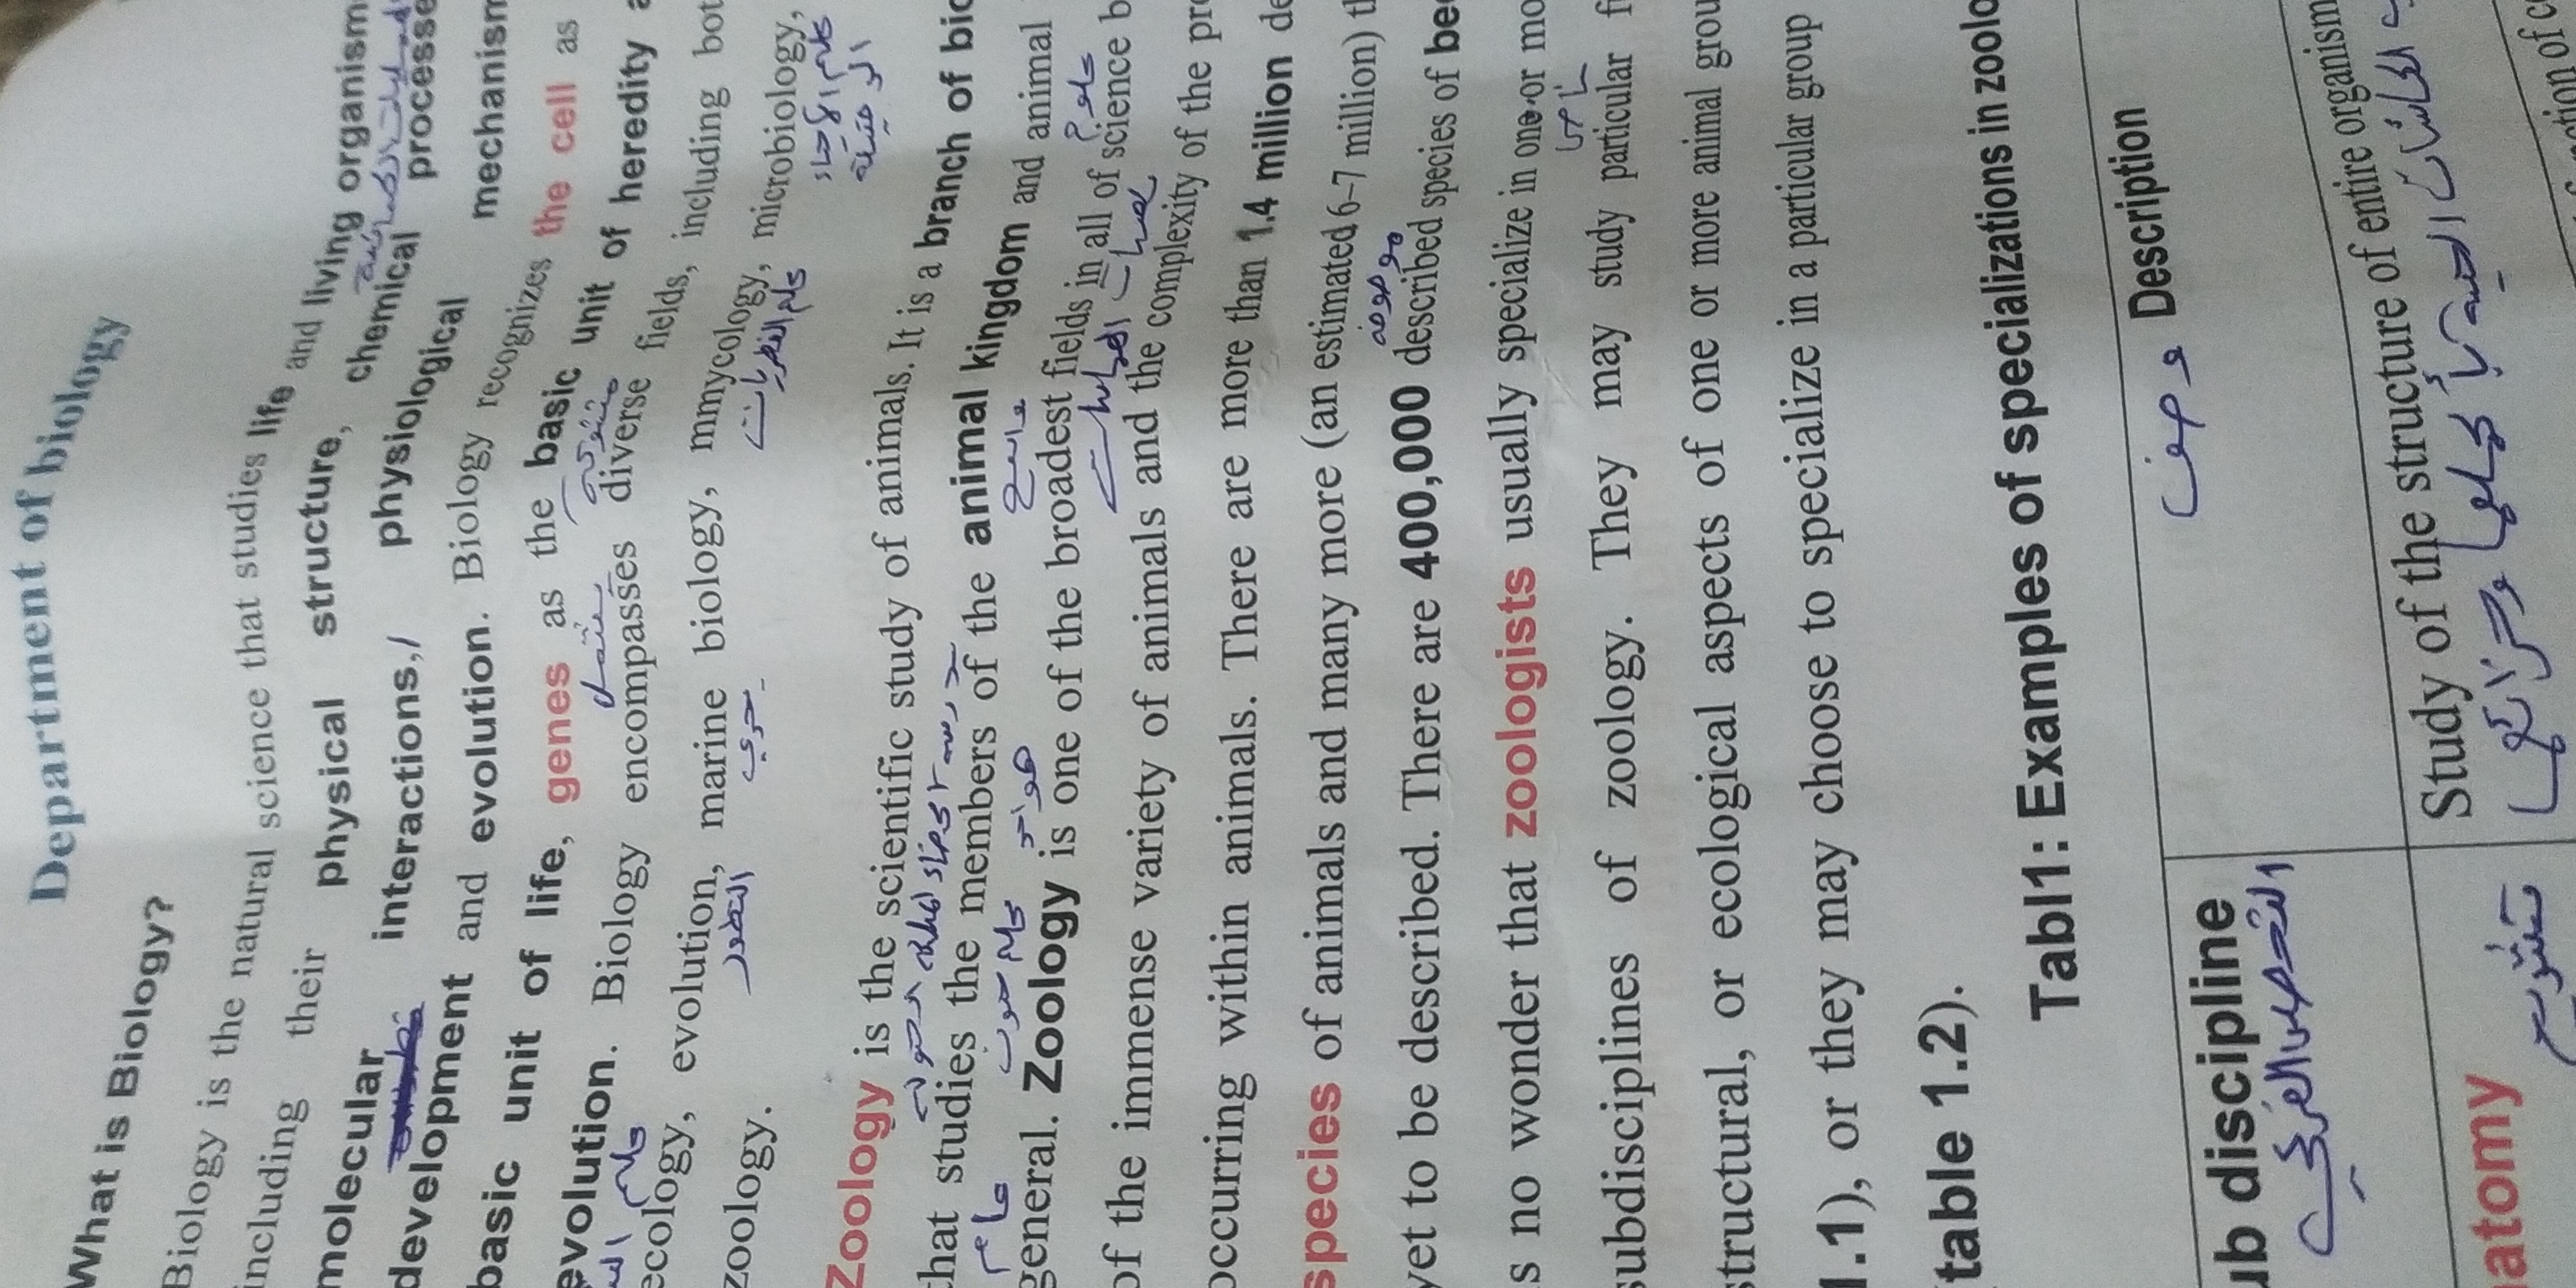 Department of biology
What is Biology?
Biology is the natural science that studies life and living organism
including their physical structure, chemical processe
molecular interactions, physiological mechanism
development and evolution. Biology recognizes the cell as
basic unit of life, genes as the basic unit of heredity
evolution. Biology encompasses diverse fields, including bot
متنوعة
علم
ecology, evolution, marine biology, mmycology, microbiology,
التطور بحري علم الفطريات علم الأحياء
zoology.
Zoology is the scientific study of animals. It is a branch of bio
that studies the members of the animal kingdom and animal
عام علم واسع علوم
general. Zoology is one of the broadest fields in all of science b
of the immense variety of animals and the complexity of the pro
occurring within animals. There are more than 1.4 million de
species of animals and many more (an estimated 6–7 million) t
yet to be described. There are 400,000 described species of bee
s no wonder that zoologists usually specialize in one or mo
subdisciplines of zoology. They may study particular f
structural, or ecological aspects of one or more animal grou
1.1), or they may choose to specialize in a particular group
table 1.2).
Tabl1: Examples of specializations in zoolo
ub discipline Description
وصف
atomy Study of the structure of entire organism